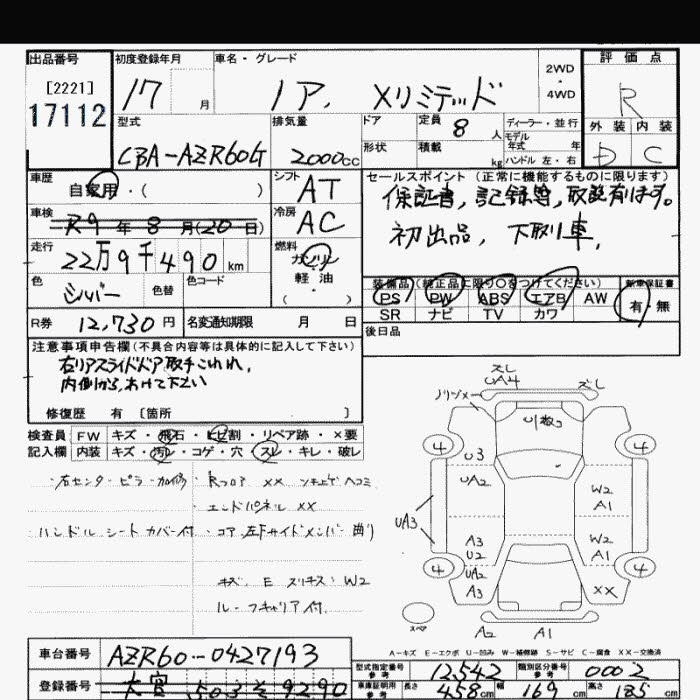 出品番号 初度登録年月 車名・グレード 2WD ・ 4WD 評価点
[2221]
17112
17 月 ノア, Xリミテッド R
型式 排気量 ドア 定員 8 人 ディーラー・並行 外装 内装
CBA-AZR60G 2000cc 形状 積載 kg モデル年式 年 ハンドル 左・右 D C
車歴 自家用・( ) シフト AT セールスポイント (正常に機能するものに限ります)
保証書, 記録簿, 取説有ります。
初出品, 下取り車,
車検 R9 年 8 月(20日) 冷房 AC
走行 22万9千490 km 燃料 ガソリン 軽油 ( )
色 シルバー 色替 色コード
装備品 (純正品に限り○をつけてください) 新車保証書
PS PW ABS エアB AW 有・無
SR ナビ TV カワ
R券 12,730円 名変通知期限 月 日 後日品
注意事項申告欄 (不具合内容等は具体的に記入して下さい)
右リアスライドドア取手こわれ,
内側から,あけて下さい
修復歴 有 [箇所 ]
検査員 FW キズ・飛石・ヒビ割・リペア跡・×要
記入欄 内装 キズ・汚レ・コゲ・穴・スレ・キレ・破レ
・右センターピラー加修 ・Rフロア XX
・エンドパネル XX
・ハンドル シートカバー付 ・コア,左Fサイドメンバー曲り
キズ, E スリキズ: W2
ルーフキャリア付.
スレ
UA4 ズレ
4 4
U3
UA2 W2
A1
UA3
A3
U2 W2
A1
4 UA2
A3 XX 4
スペア
A2 A1
A-キズ E-エクボ U-凹み W-補修跡 S-サビ C-腐食 XX-交換済
車台番号 AZR60-0427193
型式指定番号 参考 12542 類別区分番号 参考 0002
登録番号 大宮 503 そ 9290
車庫証明用 参考 長さ 458cm 幅 169cm 高さ 185cm